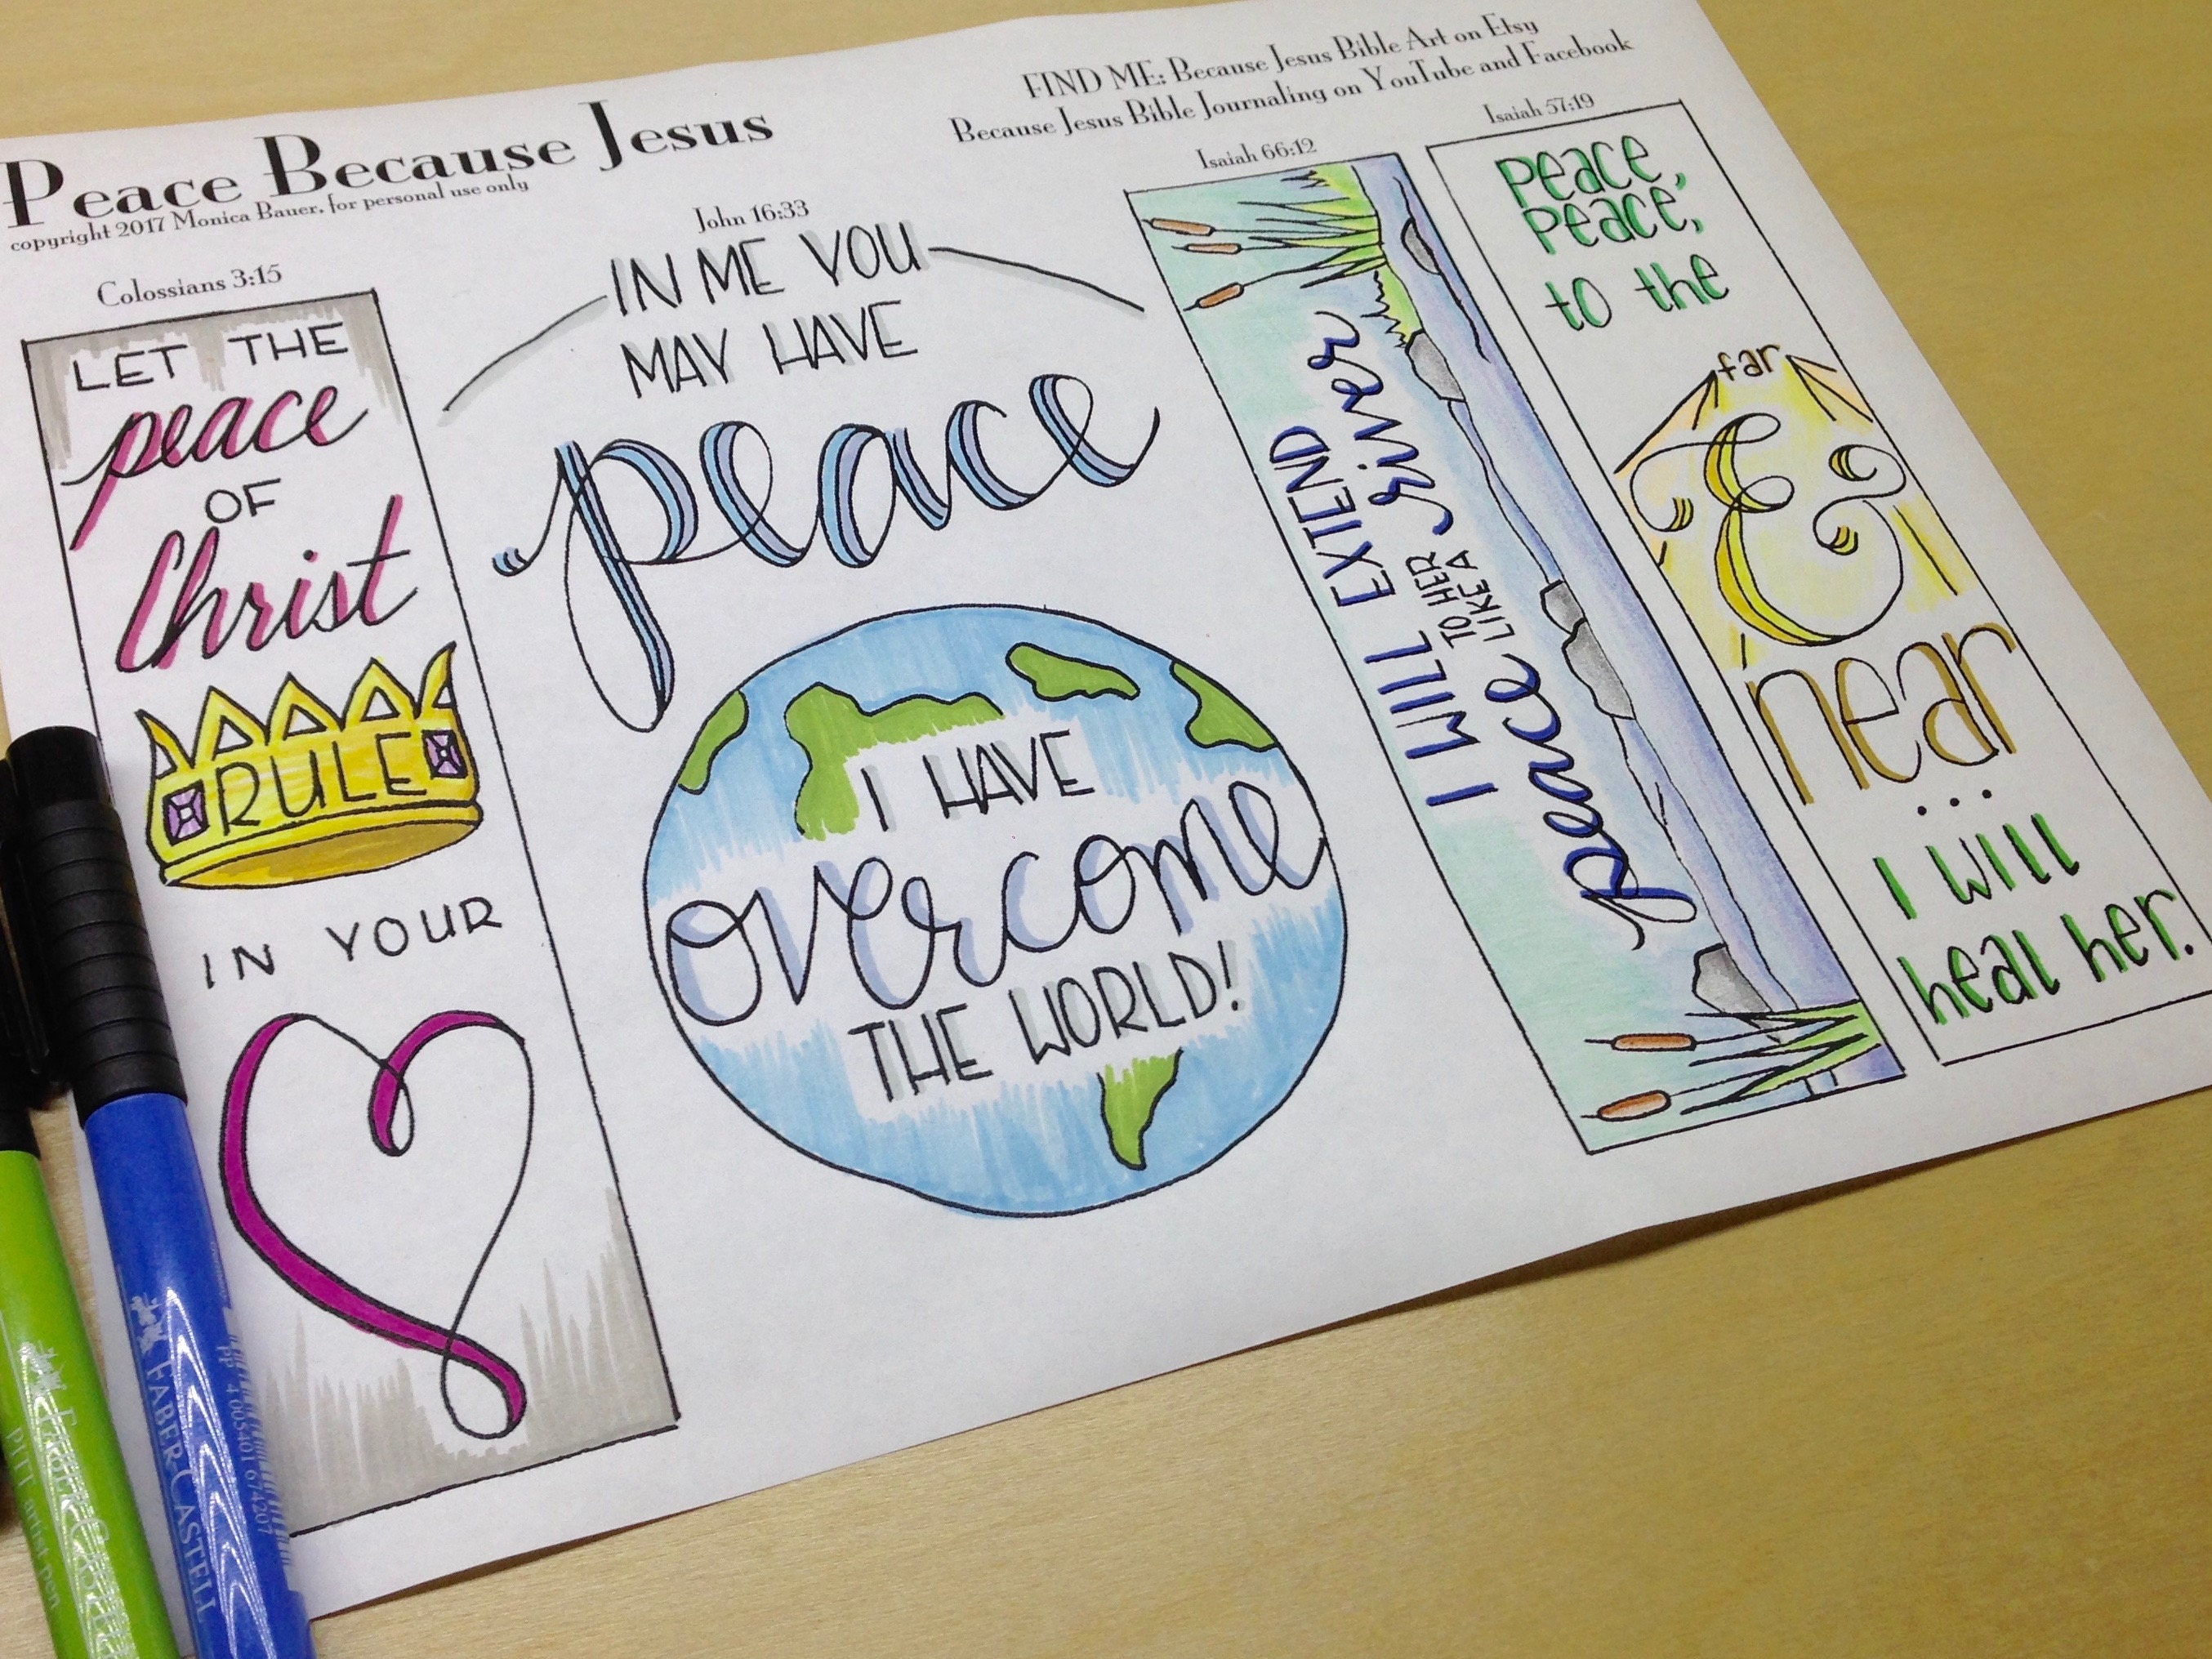 Peace Because Jesus
copyright 2017 Monica Bauer. for personal use only
FIND ME: Because Jesus Bible Art on Etsy
Because Jesus Bible Journaling on YouTube and Facebook
Colossians 3:15
LET THE
peace
OF
Christ
RULE
IN YOUR
John 16:33
IN ME YOU
MAY HAVE
peace
I HAVE
overcome
THE WORLD!
Isaiah 66:12
I WILL EXTEND
peace TO HER
LIKE A river
Isaiah 57:19
peace,
peace,
to the
far
&
near
...
I will
heal her.
FABER CASTELL
PITT artist pen
FABER CASTELL
PP 4 005401 674207